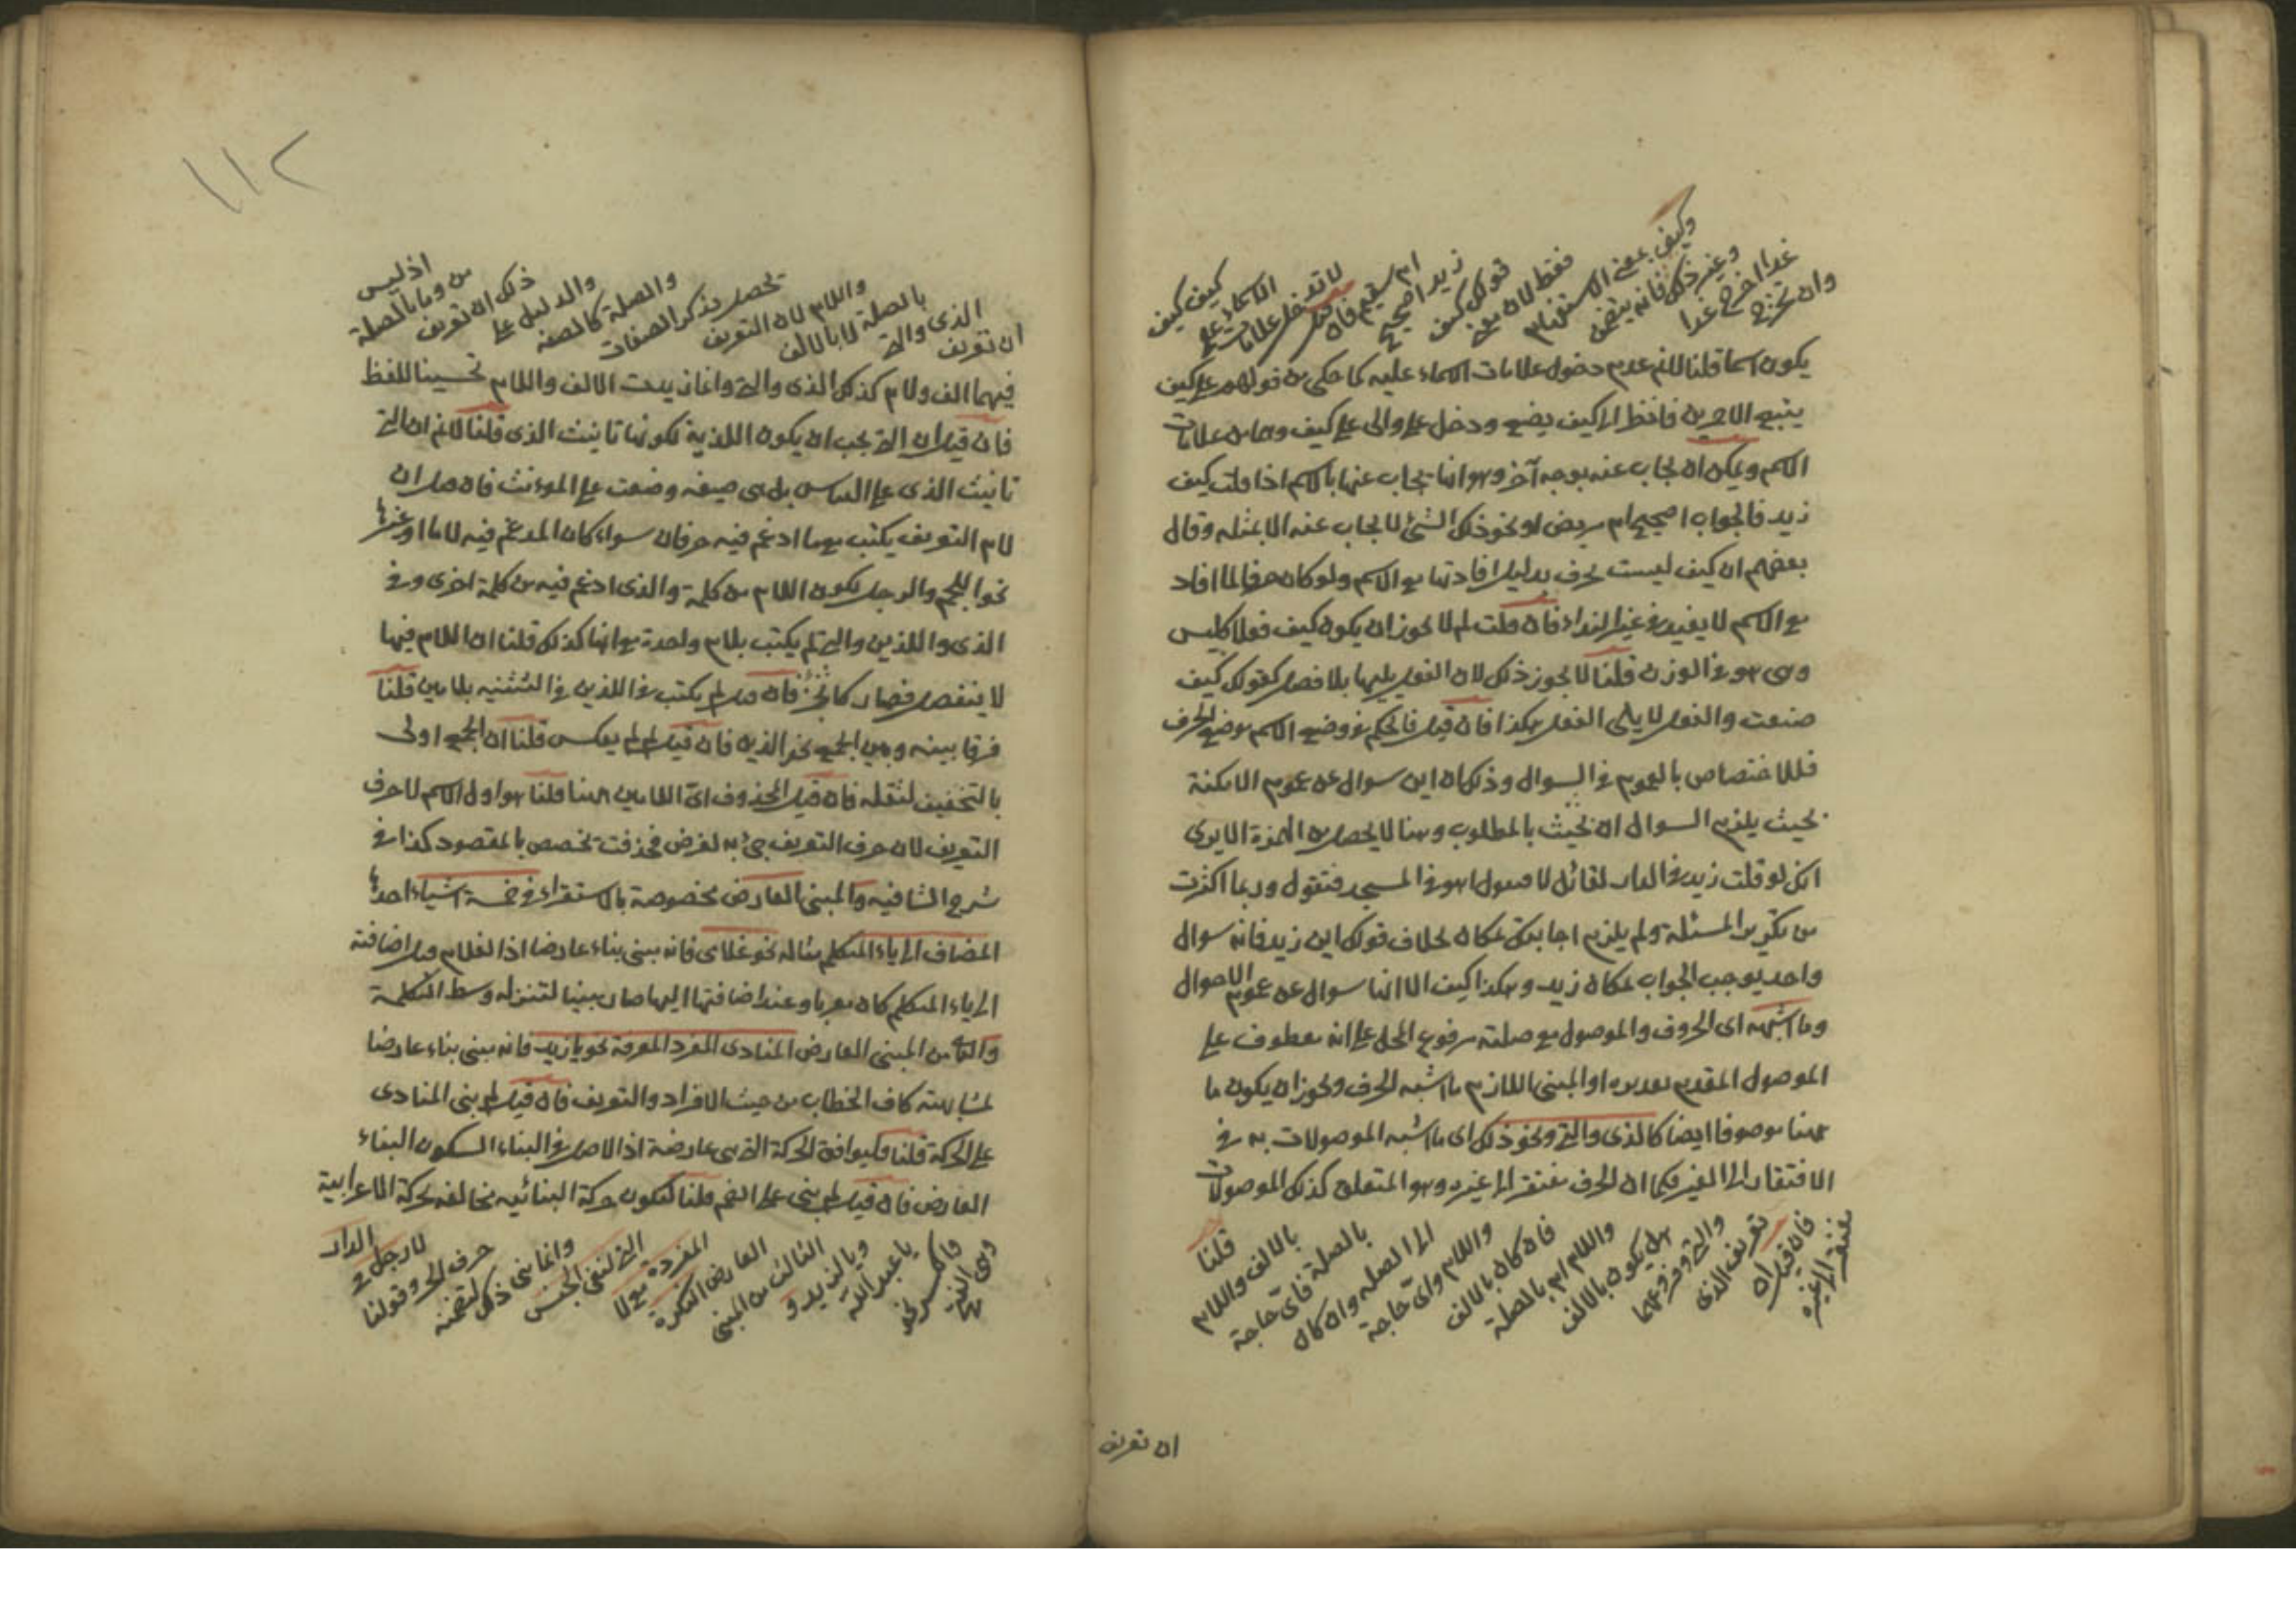 وان تخرج
غدا اخرج غدا
وغير ذلك فانه يتضمن
وكيف بمعنى الاستفهام
فقط لان معنى
قولك كيف
زيد اصحيح
ام سقيم فان
قيل
لا تدخل علامات
الاسماء على
كيف كيف
يكون اسما قلنا لانم عدم دخول علامات الاسماء عليه كما حكى من قولهم على كيف
يتبع الاحمرين فانظر الى كيف يصنع ودخل على والى على كيف وهما من علامات
الاسم ويمكن ان يجاب عنه بوجه آخر وهو انها يجاب عنها بالاسم اذا قلت كيف
زيد فالجواب اصحيح ام مريض او نحو ذلك الشئ لا يجاب عنه الا بمثله وقال
بعضهم ان كيف ليست بحرف بدليل افادتها مع الاسم ولو كان حرفا لما افاد
مع الاسم لا يفيد في غير النداء فان قلت لم لا يجوز ان يكون كيف فعلا كليس
وهى هو في الوزن قلنا لا يجوز ذلك لان الفعل يليها بلا فصل كقولك كيف
صنعت والفعل لا يلى الفعل هكذا فان قيل فالحكم في وضع الاسم موضع الحرف
فللاختصاص بالعموم في السوال وذلك ان اين سوال عن عموم الامكنة
بحيث يلزم السوال ان بحيث بالمطلوب وهنا لا يحصل من الهمزة الا يرى
انك لو قلت زيد في الدار لقائل لا فيقول اهو في المسجد فتقول وربما اكثرت
من تكرير المسئلة ولم يلزم اجابتك بمكان بخلاف قولك اين زيد فانه سوال
واحد يوجب الجواب بمكان زيد وهكذا كيف الا انها سوال عن عموم الاحوال
وما اشبهه اى الحروف والموصول مع صلته مرفوع المحل على انه معطوف على
الموصول المقدم تقديره او المبنى اللازم ما اشبه الحرف ويجوز ان يكون ما
ههنا موصوفا ايضا كالذى والتى ونحو ذلك اى ما اشبه الموصولات به في
الافتقار الى الغير فكما ان الحرف مفتقر الى غيره وهو المتعلق كذلك الموصولات
يفتقر الى غيره
فان قيل ان
تعريف الذى
والتى وفروعهما
هل يكون بالالف
واللام ام بالصلة
فان كان بالالف
واللام واى حاجة
الى الصلة وان كان
بالصلة فاى حاجة
بالالف واللام
قلنا
ان تعريف
١١٢
ان تعريف
الذى والتى
بالصلة لا بالالف
واللام لان التعريف
تحصل بذكر الصفات
والصلة كالصفة
والدليل على
ذلك ان تعريف
من وما بالصلة
اذ ليس
فيهما الف ولام كذلك الذى والتى وانما زيدت الالف واللام تحسينا للفظ
فان قيل ان التى يجب ان يكون اللذية لكونها تانيث الذى قلنا لانم ان التى
تانيث الذى على القياس بل هى صيغة وضعت على المؤنث فان قيل ان
لام التعريف يكتب مع ما ادغم فيه حرفان سواء كان المدغم فيه لاما او غيرها
نحو اللحم والرجل لكون اللام من كلمة والذى ادغم فيه من كلمة اخرى وفي
الذى واللذين والتى لم يكتب بلام واحدة مع انها كذلك قلنا ان اللام فيها
لا ينفصل فصار كالجزء فان قيل لم يكتب في اللذين في التثنيه بلامين قلنا
فرقا بينه وبين الجمع نحو الذين فان قيل لم لم يعكس قلنا ان الجمع اولى
بالتخفيف لثقله فان قيل المحذوف اى اللامين ههنا قلنا هو اول الاسم لا حرف
التعريف لان حرف التعريف جئ به لغرض فحذفت تخصص بالمقصود كذا في
شرح الشافيه والمبنى العارض مخصوصة بالاستقراء في خمسة اشياء احدها
المضاف الى ياء المتكلم مثاله نحو غلامى فانه مبنى بناء عارضا اذ الغلام قبل اضافته
الى ياء المتكلم كان معربا وعند اضافتها اليها صار مبنيا لتنزله وسط الكلمة
والثانى من المبنى العارض المنادى المفرد المعرفة نحو يا زيد فانه مبنى بناء عارضا
لمشابهته كاف الخطاب من حيث الافراد والتعريف فان قيل لم بنى المنادى
على الحركة قلنا فليوافق الحركة التى هى عارضة اذ الاصل في البناء السكون البناء
العارض فان قيل لم بنى على الضم قلنا لتكون حركة البنائيه مخالفه لحركة الاعرابية
وهى الفتح
والكسر نحو
يا عبد الله
ويا لزيد و
الثالث من المبنى
العارض النكرة
المفردة مع لا
التى لنفى الجنس
وانما بنى ذلك لتضمنه
حرف الجر وقولنا
لا رجل في
الدار